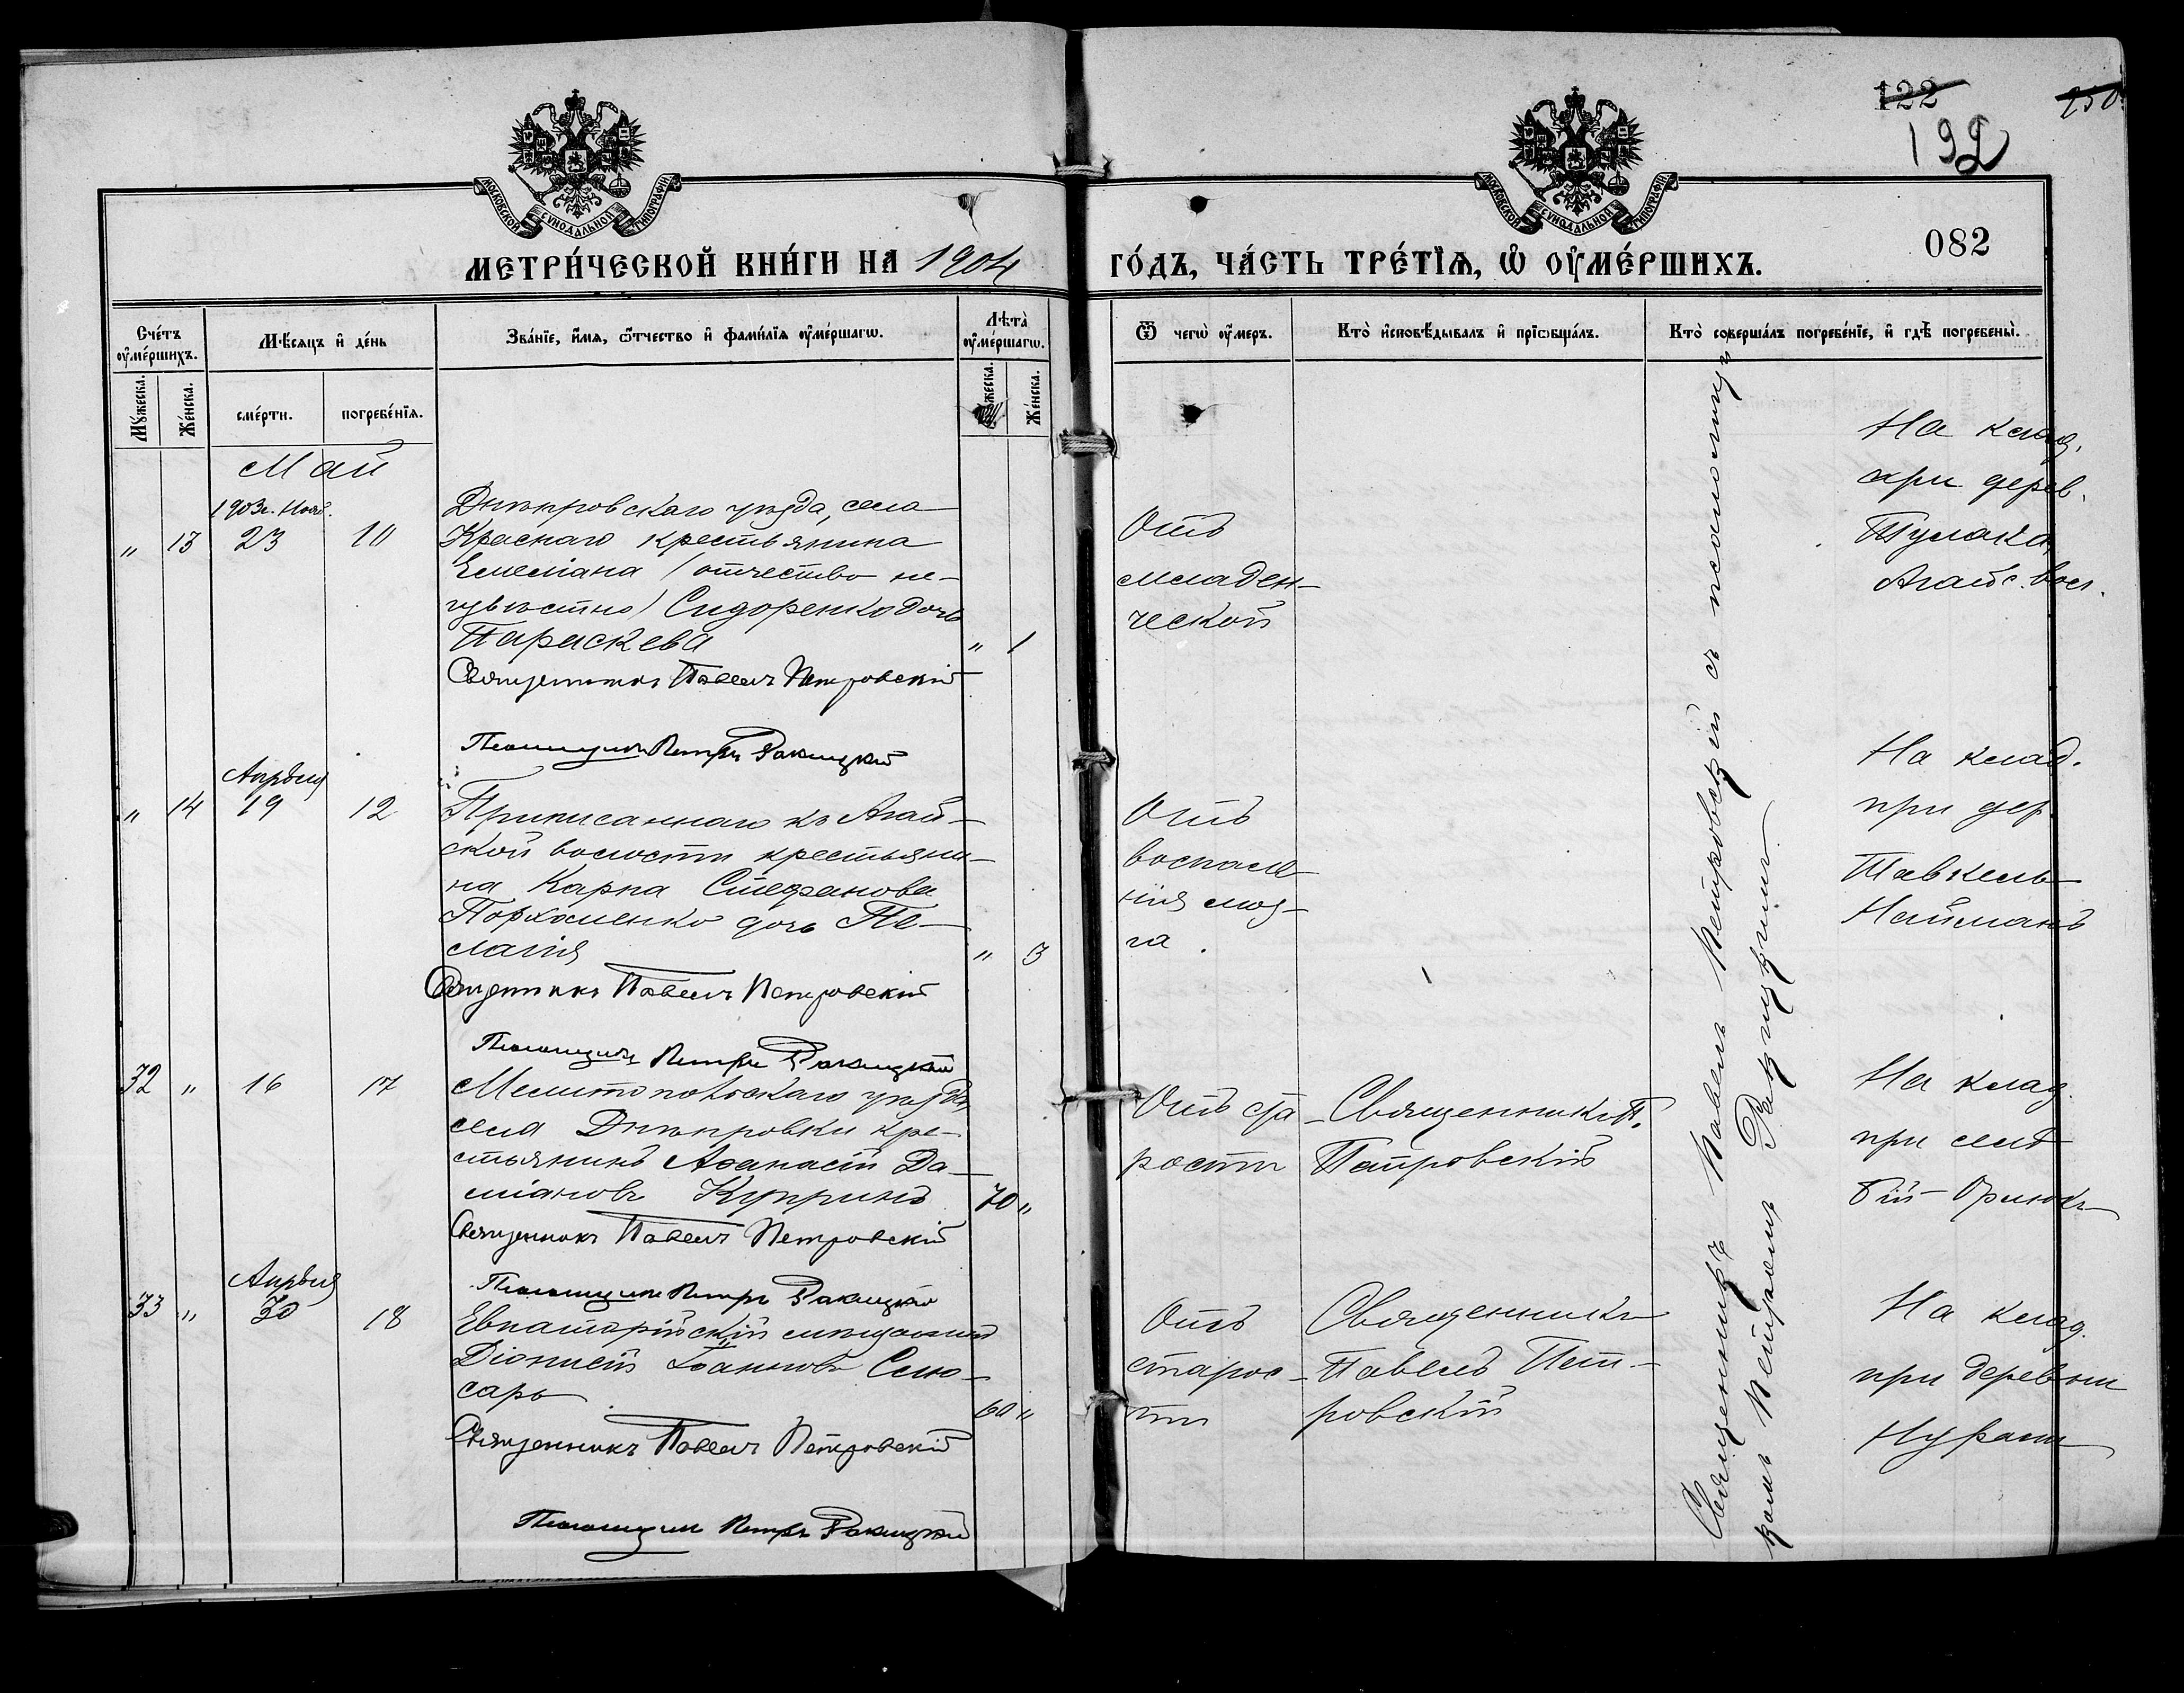 122
250
192
МОСКОВСКОЙ СѴНОДАЛЬНОЙ ТИПОГРАФІИ
МОСКОВСКОЙ СѴНОДАЛЬНОЙ ТИПОГРАФІИ
МЕТРИ́ЧЕСКОЙ КНИ́ГИ НА 1904
ГО́ДЪ, ЧА́СТЬ ТРЕ́ТЇѦ, Ѡ҆ ОУ҆МЕ́РШИХЪ.
082
Сче́тъ оу҆ме́ршихъ.
Мꙋ́жеска.
Же́нска.
Мѣ́сяцъ и҆ де́нь
сме́рти.
погребе́нїѧ.
Зва́нїе, и҆́мѧ, ѻ҆́тчество и҆ фами́лїѧ оу҆ме́ршагѡ.
Лѣ́та̀ оу҆ме́ршагѡ.
Мꙋ́жеска.
Же́нска.
Ѿ чегѡ̀ оу҆́меръ.
Кто̀ и҆сповѣ́дывалъ и҆ прїѡбща́лъ.
Кто̀ соверша́лъ погребе́нїе, и҆ гдѣ̀ погребены̀.
Май
1903г. Нояб.
" 13 23 10
Днѣпровскаго уѣзда, села
Краснаго крестьянина
Емеліана (отчество не-
извѣстно) Сидоренко дочь
Параскева " 1
Священникъ Павелъ Петровскій
Псаломщикъ Петръ Ракицкій
Отъ
младен-
ческой
На клад.
при дерев.
Агайс. вол.
Апрѣля
" 14 19 12
Приписаннаго къ Агай-
ской волости крестьяни-
на Карпа Стефанова
Пархоменко дочь Пе-
лагія " 3
Священникъ Павелъ Петровскій
Псаломщикъ Петръ Ракицкій
Отъ
воспале-
нія моз-
га.
На клад.
при дер.
Тавкель-
Найманъ
32 " 16 17
Мелитопольскаго уѣзда,
села Днѣпровки кре-
стьянинъ Аѳанасій Да-
міановъ Купринъ 70 "
Священникъ Павелъ Петровскій
Псаломщикъ Петръ Ракицкій
Отъ ста-
рости
Священникъ П.
Петровскій
На клад.
при селѣ
Бій-Орлюкъ
Апрѣля
33 " 30 18
Евпаторійскій мѣщанинъ
Діонисій Іоанновъ Слю-
сарь 60 "
Священникъ Павелъ Петровскій
Псаломщикъ Петръ Ракицкій
Отъ
старос-
ти
Священникъ
Павелъ Пет-
ровскій
На клад.
при деревни
Священникъ Павелъ Петровскій съ псаломщи-
комъ Петромъ Ракицкимъ